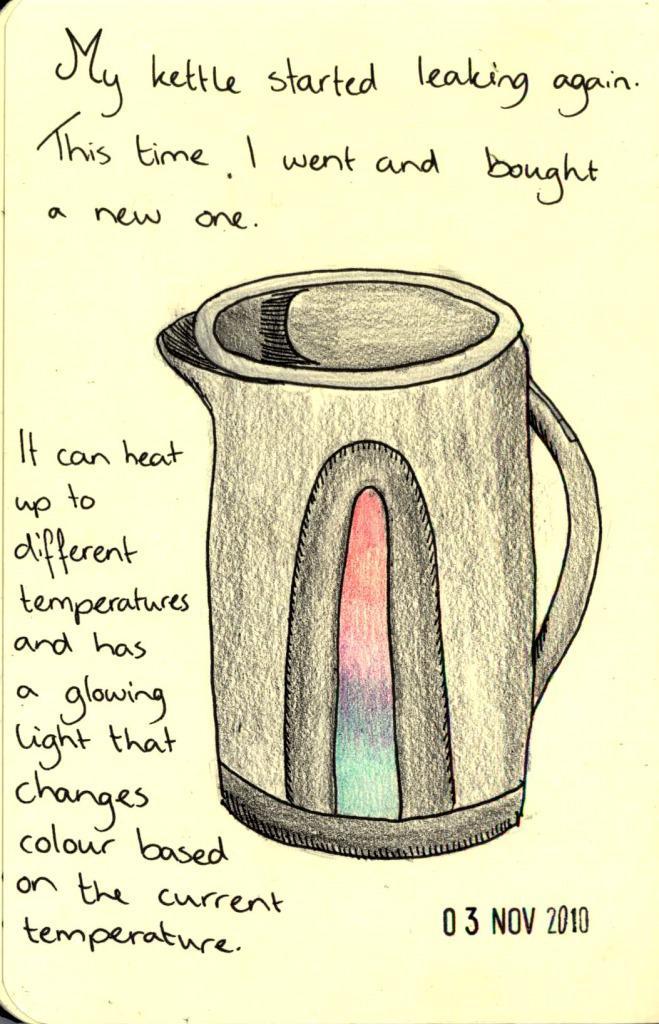 My kettle started leaking again.
This time, I went and bought
a new one.
It can heat
up to
different
temperatures
and has
a glowing
light that
changes
colour based
on the current
temperature.
03 NOV 2010